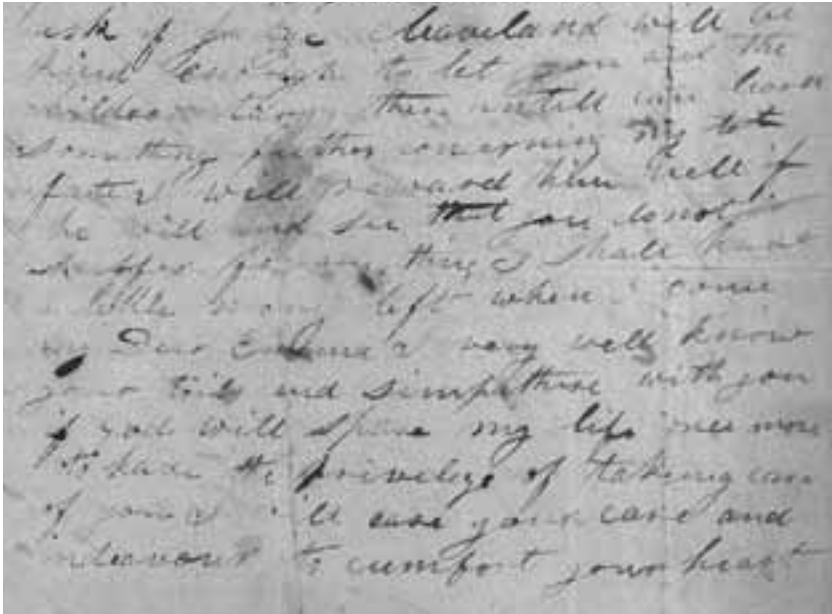 ask if judge Cleaveland will be
kind enough to let you and the
children tarry there untill you learn
something further concerning my lot
fate I will reward him well if
he will and see that you do not
suffer for any thing I shall have
a little mony left when I come
my Dear Emma I very well know
your toils and simpathise with you
if god will spare my life once more
to have the privelege of takeing care
of you I will ease your care and
indeavour to cumfort your heart